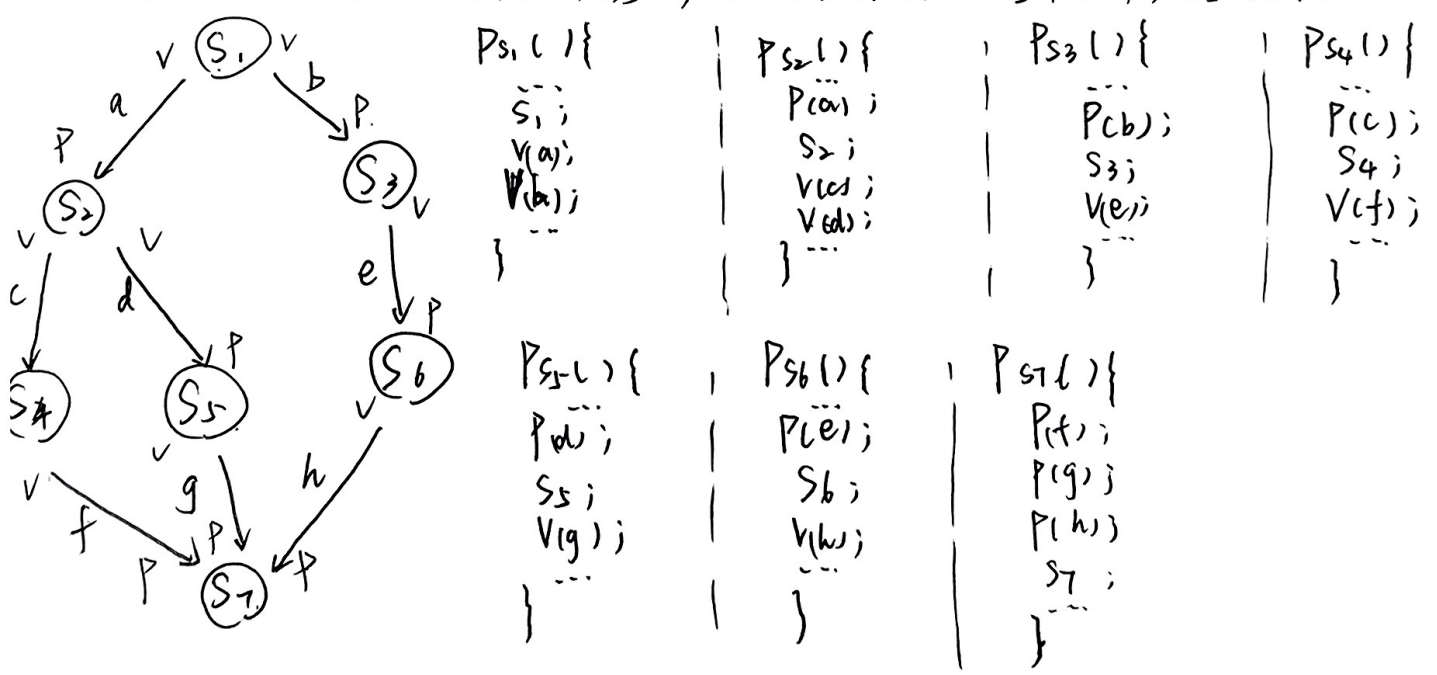 S1
V
V
a
b
P
P.
S2
S3
V
V
V
c
d
e
P
P
S4
S5
S6
V
V
V
f
g
h
P
P
P
S7
Ps1(){
...
S1;
V(a);
V(b);
...
}
Ps2(){
...
P(a);
S2;
V(c);
V(d);
...
}
Ps3(){
...
P(b);
S3;
V(e);
...
}
Ps4(){
...
P(c);
S4;
V(f);
...
}
Ps5(){
...
P(d);
S5;
V(g);
...
}
Ps6(){
...
P(e);
S6;
V(h);
...
}
Ps7(){
P(f);
P(g);
P(h);
S7;
...
}